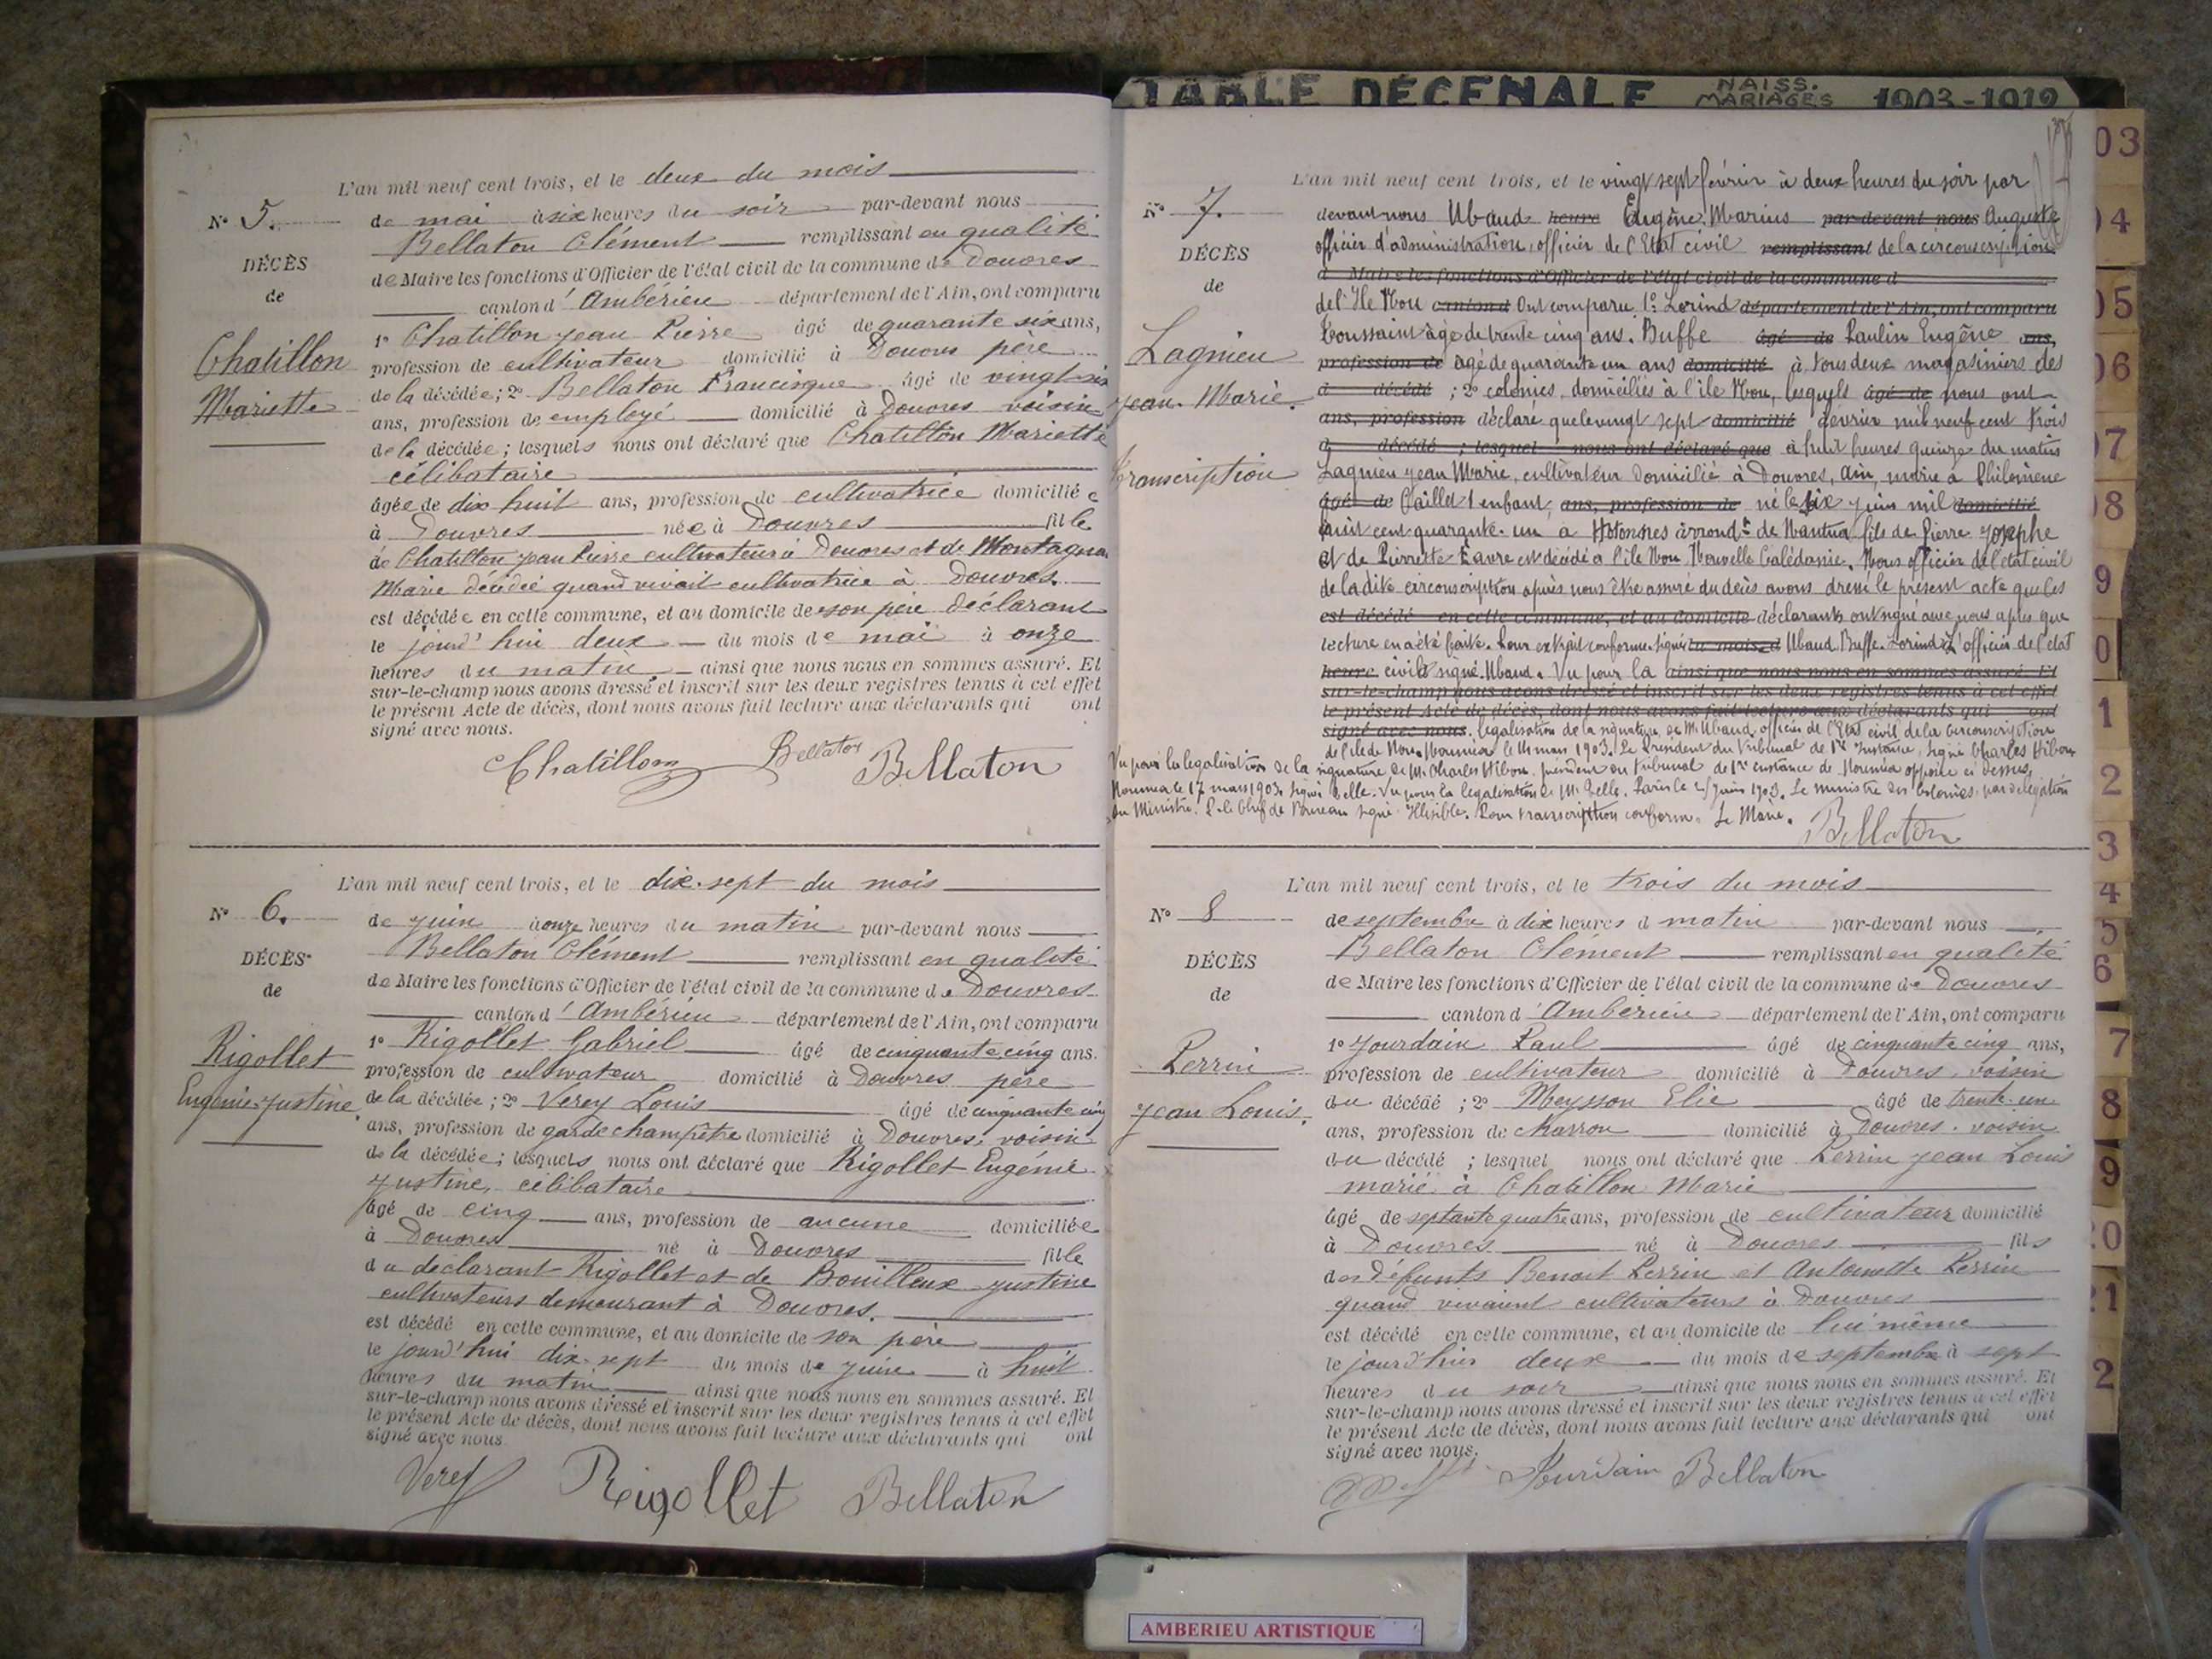 TABLE DÉCENALE NAISS. MARIAGES 1903-1912
L'an mil neuf cent trois, et le deux du mois
N° 5.
de mai à six heures du soir par-devant nous
Bellaton Clément remplissant en qualité
DÉCÈS
de Maire les fonctions d'Officier de l'état civil de la commune de Douvres
de
canton d'Ambérieu département de l'Ain, ont comparu
1° Chatillon Jean Pierre âgé de quarante six ans,
Chatillon
profession de cultivateur domicilié à Douvres père
Mariette
de la décédée; 2° Bellaton Francisque âgé de vingt six
ans, profession de employé domicilié à Douvres voisin
de la décédée; lesquels nous ont déclaré que Chatillon Mariette
célibataire
âgée de dix huit ans, profession de cultivatrice domiciliée
à Douvres née à Douvres fille
de Chatillon Jean Pierre cultivateur à Douvres et de
Marie décédée quand vivait cultivatrice à Douvres.
est décédée en cette commune, et au domicile de son père déclarant
le jourd'hui deux du mois de mai à onze
heures du matin ainsi que nous nous en sommes assuré. Et
sur-le-champ nous avons dressé et inscrit sur les deux registres tenus à cet effet
le présent Acte de décès, dont nous avons fait lecture aux déclarants qui ont
signé avec nous.
Chatillon Bellaton Bellaton
L'an mil neuf cent trois, et le dix-sept du mois
N° 6.
de juin à onze heures du matin par-devant nous
Bellaton Clément remplissant en qualité
DÉCÈS
de Maire les fonctions d'Officier de l'état civil de la commune de Douvres
de
canton d'Ambérieu département de l'Ain, ont comparu
1° Rigollet Gabriel âgé de cinquante cinq ans.
Rigollet
profession de cultivateur domicilié à Douvres père
Eugénie Justine
de la décédée; 2° Verey Louis âgé de cinquante cinq
ans, profession de garde champêtre domicilié à Douvres, voisin
de la décédée; lesquels nous ont déclaré que Rigollet Eugénie
Justine, célibataire
âgé de cinq ans, profession de aucune domiciliée
à Douvres né à Douvres fille
du déclarant Rigollet et de Bouilleux Justine
cultivateurs demeurant à Douvres.
est décédé en cette commune, et au domicile de son père
le jourd'hui dix-sept du mois de juin à huit
heures du matin ainsi que nous nous en sommes assuré. Et
sur-le-champ nous avons dressé et inscrit sur les deux registres tenus à cet effet
le présent Acte de décès, dont nous avons fait lecture aux déclarants qui ont
signé avec nous
Verey Rigollet Bellaton
L'an mil neuf cent trois, et le vingt sept février à deux heures du soir par
N° 7.
devant nous Ubaud heure Eugène Marius par-devant nous Auguste
officier d'administration, officier de l'Etat civil remplissant de la circonscription
DÉCÈS
d Maire les fonctions d'Officier de l'état civil de la commune d
de
de l'Ile Nou canton d Ont comparu 1° Lorind département de l'Ain, ont comparu
Toussaint âgé de trente cinq ans. Buffe âgé de Paulin Eugène ans,
Lagnieu
profession de âgé de quarante un ans domicilié à tous deux magasiniers des
Jean-Marie.
d décédé ; 2° colonies, domiciliés à l'île Nou, lesquels âgé de nous ont
ans, profession déclaré que le vingt sept domicilié février mil neuf cent trois
d décédé ; lesquel nous ont déclaré que à huit heures quinze du matin
Transcription
Lagnieu Jean Marie, cultivateur domicilié à Douvres, Ain, marié à Philomène
âgé de Caillet 1 enfant, ans, profession de né le six juin mil domicilié
huit cent quarante-un à Hotonnes arrondt de Nantua fils de Pierre Josephe
et de Pierrette est décédé à l'île Nou Nouvelle Calédonie. Nous officier de l'état civil
de la dite circonscription après nous être assuré du décès avons dressé le présent acte que les
est décédé en cette commune, et au domicile déclarants ont signé avec nous après que
lecture en a été faite. Pour extrait conforme signé du mois d Ubaud Buffe. Lorind L'officier de l'état
heure civil signé Ubaud. Vu pour la ainsi que nous nous en sommes assuré. Et
sur-le-champ nous avons dressé et inscrit sur les deux registres tenus à cet effet
le présent Acte de décès, dont nous avons fait lecture aux déclarants qui ont
signé avec nous. légalisation de la signature de M. Ubaud, officier de l'Etat civil de la circonscription
de l'ile de Nou. Nouméa le 14 mars 1903. Le Président du Tribunal de 1re Instance, signé Charles Hibon
Vu pour la légalisation de la signature de M. Charles Hibon, président du tribunal de 1re instance de Nouméa apposée ci dessus,
Nouméa le 17 mars 1903. Signé Telle. Vu pour la légalisation de M. Telle. Paris le juin 1903. Le ministre des Colonies, par délégation
du Ministre. P. le Chef de Bureau signé Illisible. Pour transcription conforme. Le Maire.
Bellaton
L'an mil neuf cent trois, et le trois du mois
N° 8
de septembre à dix heures d matin par-devant nous
Bellaton Clément remplissant en qualité
DÉCÈS
de Maire les fonctions d'Officier de l'état civil de la commune de Douvres
de
canton d'Ambérieu département de l'Ain, ont comparu
1° Jourdain Paul âgé de cinquante cinq ans,
Perrin
profession de cultivateur domicilié à Douvres, voisin
Jean Louis.
du décédé ; 2° Meysson Elie âgé de trente-un
ans, profession de charron domicilié à Douvres, voisin
du décédé ; lesquel nous ont déclaré que Perrin Jean Louis
marié à Chatillon Marie
âgé de septante quatre ans, profession de cultivateur domicilié
à Douvres né à Douvres fils
des défunts Benoit Perrin et Antoinette Perrin
quand vivaient cultivateurs à Douvres
est décédé en cette commune, et au domicile de lui même
le jourd'hui deux du mois de septembre à sept
heures du soir ainsi que nous nous en sommes assuré. Et
sur-le-champ nous avons dressé et inscrit sur les deux registres tenus à cet effet
le présent Acte de décès, dont nous avons fait lecture aux déclarants qui ont
signé avec nous.
Jourdain Bellaton
03
04
05
06
07
08
9
0
1
2
3
4
5
6
7
8
9
20
21
2
AMBERIEU ARTISTIQUE